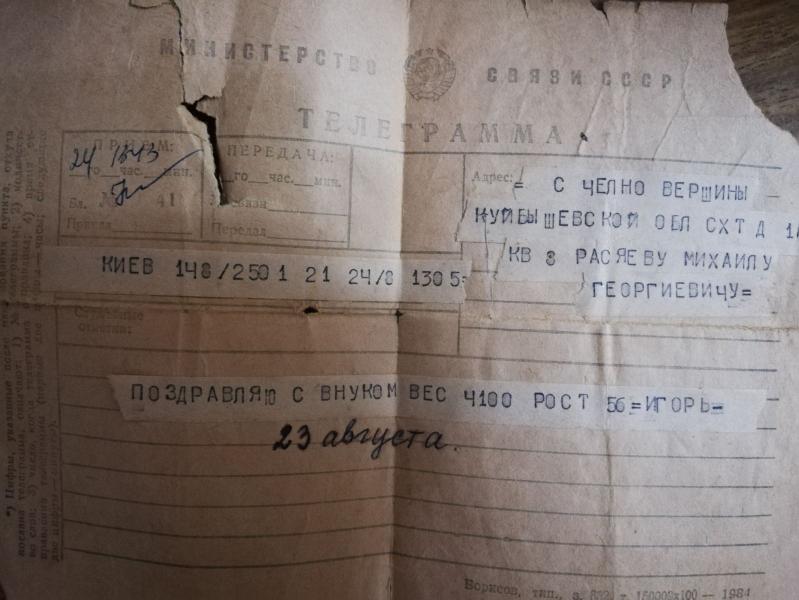 МИНИСТЕРСТВО СВЯЗИ СССР
ТЕЛЕГРАММА
ПРИЕМ:
24 1343
го час. мин.
Бл. № 411
ПЕРЕДАЧА:
го час. мин.
Передал
Адрес: = С ЧЕЛНО ВЕРШИНЫ
КУЙБЫШЕВСКОЙ ОБЛ СХТ Д 1А
КВ 8 РАСЯЕВУ МИХАИЛУ
ГЕОРГИЕВИЧУ=
КИЕВ 148/2501 21 24/8 1305=
Служебные
отметки:
ПОЗДРАВЛЯЮ С ВНУКОМ ВЕС 4100 РОСТ 56=ИГОРЬ-
23 августа.
*) Цифры, указанные после
Борисов, тип., 1984